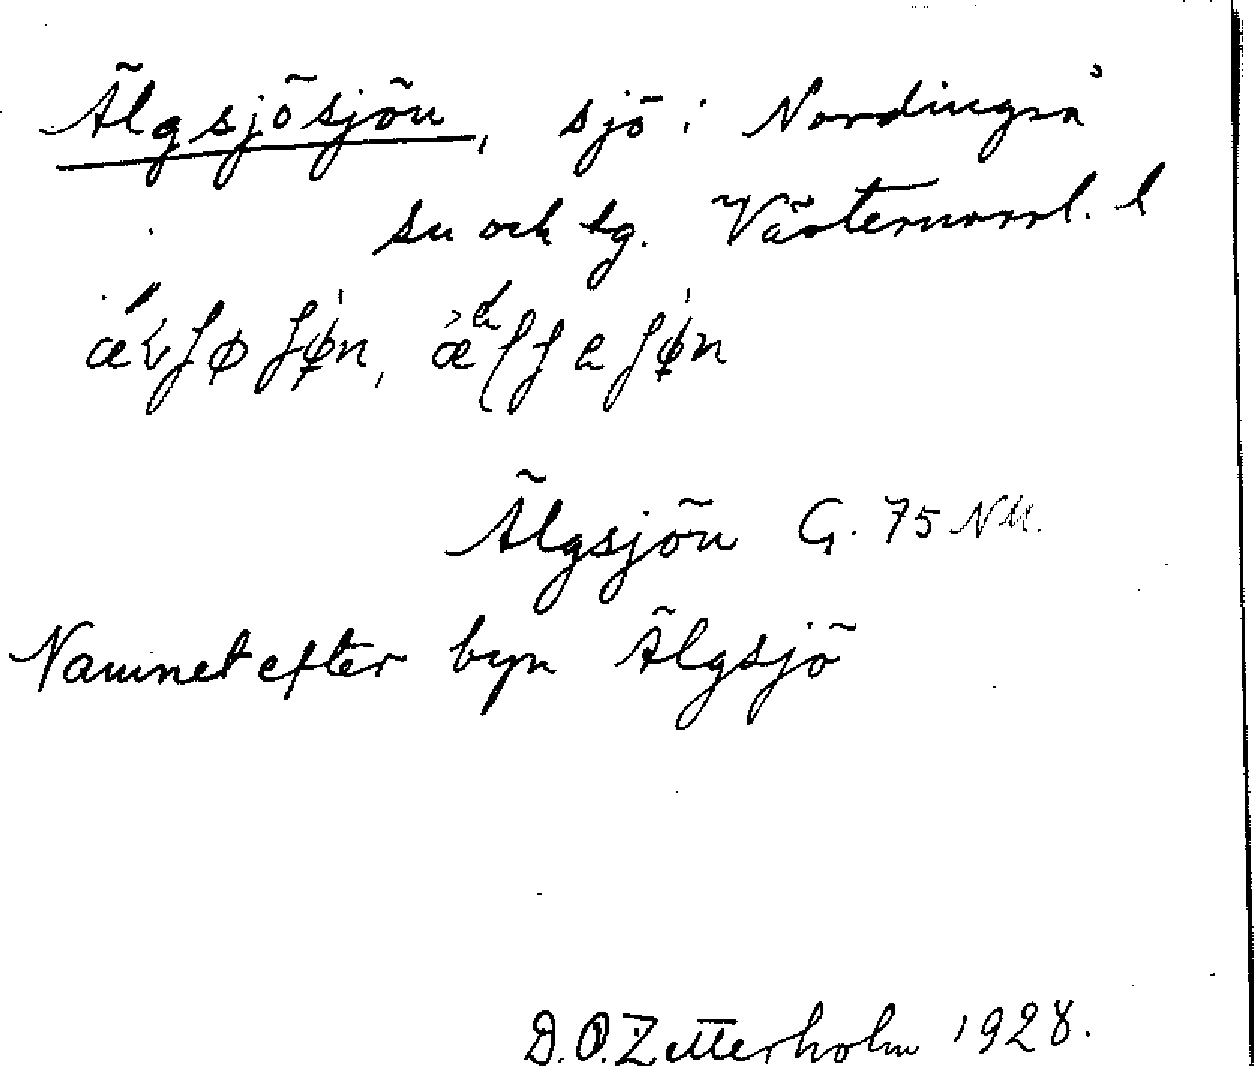 Älgsjösjön, sjö i Nordingrå
sn och tg. Västernorrl. l
Älgsjön G. 75 NU.
Namnet efter byn Älgsjö
D.O. Zetterholm 1928.